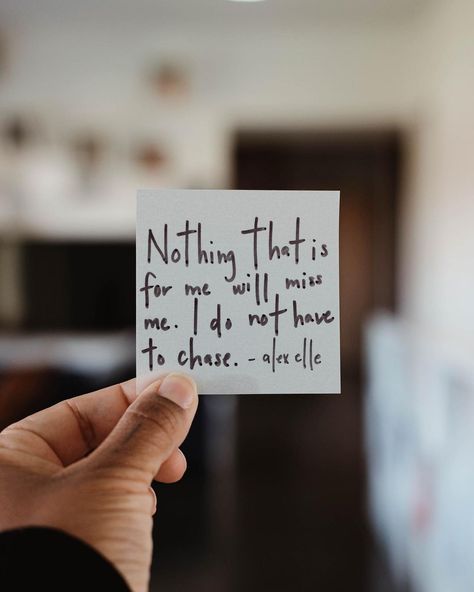 Nothing that is
for me will miss
me. I do not have
to chase. - alex elle